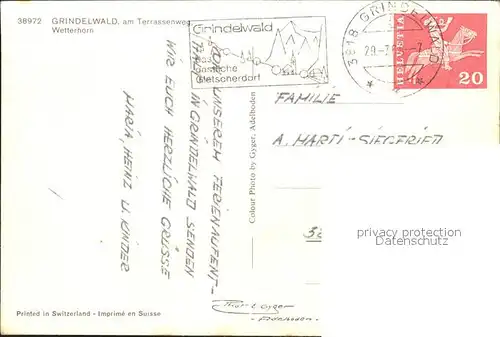 38972 GRINDELWALD, am Terrassenweg
Wetterhorn
Grindelwald
das
gastliche
Gletscherdorf
3818 GRINDELWALD
29-7
HELVETIA
20
VON UNSEREM FERIENAUFENT-
HALT IN GRINDELWALD SENDEN
WIR EUCH HERZLICHE GRÜSSE
MARIA, HEINZ U. KINDER
Colour Photo by Gyger, Adelboden
FAMILIE
A. MARTI-SIEGFRIED
privacy protection
Datenschutz
Gyger
Adelboden
Printed in Switzerland - Imprimé en Suisse